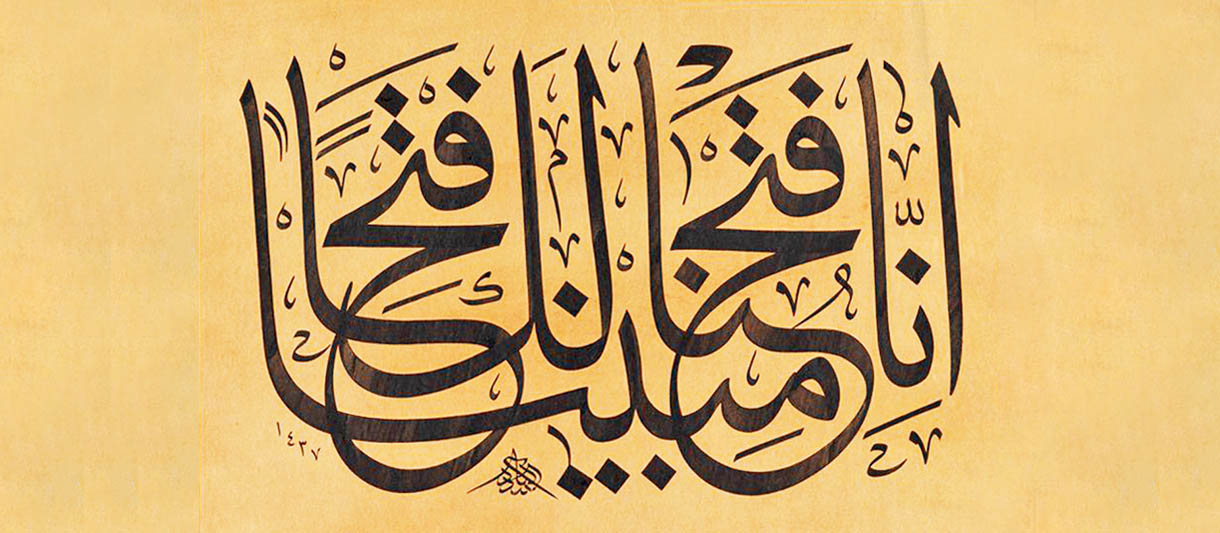 إِنَّا فَتَحْنَا لَكَ فَتْحًا مُبِينًا
١٤٣٧